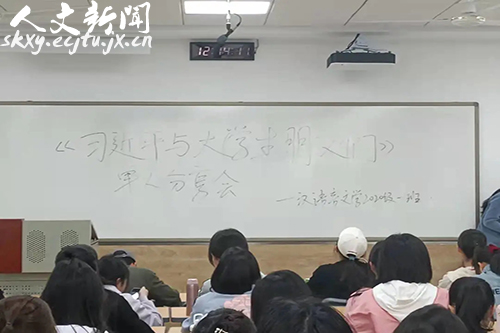 人文新闻
skxy.ecjtu.jx.cn
12:14:11
《习近平与大学生朋友们》
人分享会
—汉语言文学2020级一班